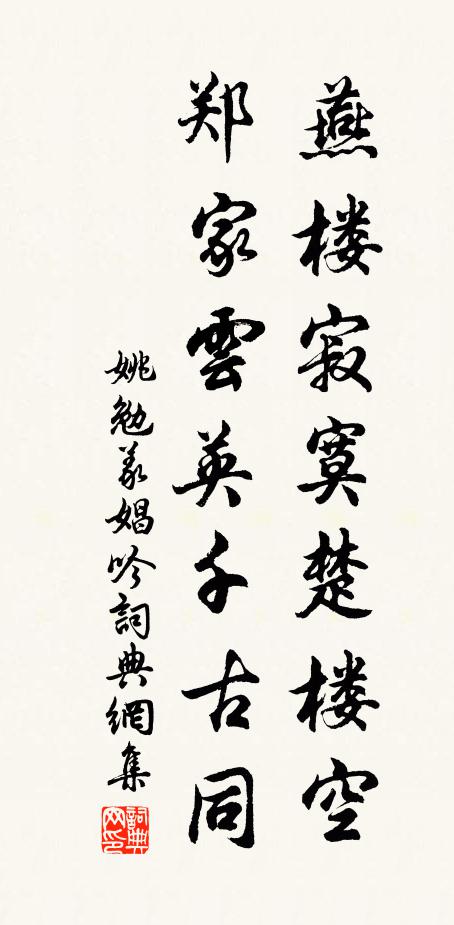 燕楼寂寞楚楼空
郑家雲英千古同
姚勉義娼吟詞典網集
詞典网印